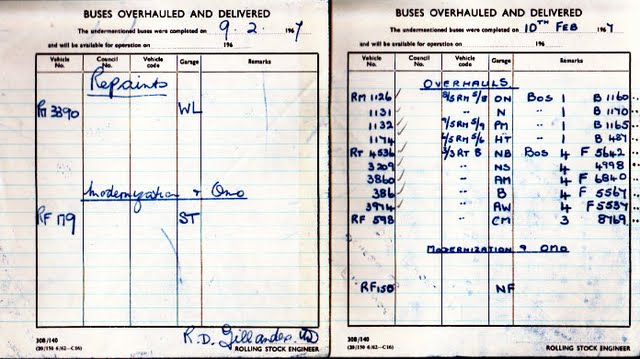 BUSES OVERHAULED AND DELIVERED
The undermentioned buses were completed on 9. 2. 1967
and will be available for operation on 196
Vehicle No. Council No. Vehicle code Garage Remarks
Repaints
RT 3390 WL
Modernization & Omo
RF 179 ST
R.D. Gillander
308/140
(20/150 6/62—C16) ROLLING STOCK ENGINEER
BUSES OVERHAULED AND DELIVERED
The undermentioned buses were completed on 10TH FEB 1967
and will be available for operation on 196
Vehicle No. Council No. Vehicle code Garage Remarks
OVERHAULS
RM 1126 8/5 RM 5/8 ON BOS 1 B 1160
1131 " N " 1 B 1170
1132 9/5 RM 5/9 PM " 1 B 1165
1174 4/5 RM 5/6 HT " 1 B 487
RT 4536 3/3 RT 8 NB BOS 4 F 5642
3209 " NS 4 4998
3860 " AM 4 F 6840
386 " A 4 F 5567
3974 " AW 4 F 5537
RF 598 " CM 3 8769
MODERNIZATION & OMO
RF 150 NF
308/140
(20/150 6/62—C16) ROLLING STOCK ENGINEER